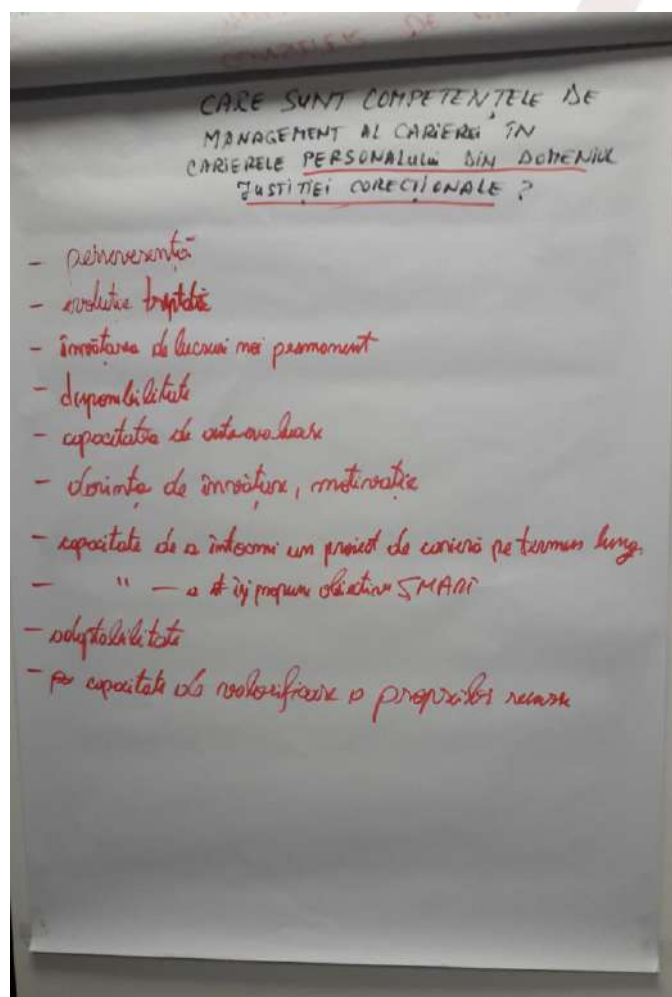 CARE SUNT COMPETENȚELE DE
MANAGEMENT AL CARIEREI ÎN
CARIERELE PERSONALULUI DIN DOMENIUL
JUSTIȚIEI CORECȚIONALE ?
- perseverență
- evoluție treptată
- învățarea de lucruri noi permanent
- disponibilitate
- capacitatea de autoevaluare
- dorința de învățare, motivație
- capacitate de a întocmi un proiect de carieră pe termen lung.
- " - a își propune obiective SMART
- adaptabilitate
- capacitate de valorificare a propriilor resurse